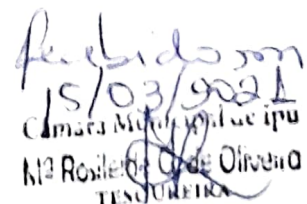 Recebido em
15/03/2021
Câmara Municipal de Ipu
Mª Rosile de Oliveira
TESOUREIRA